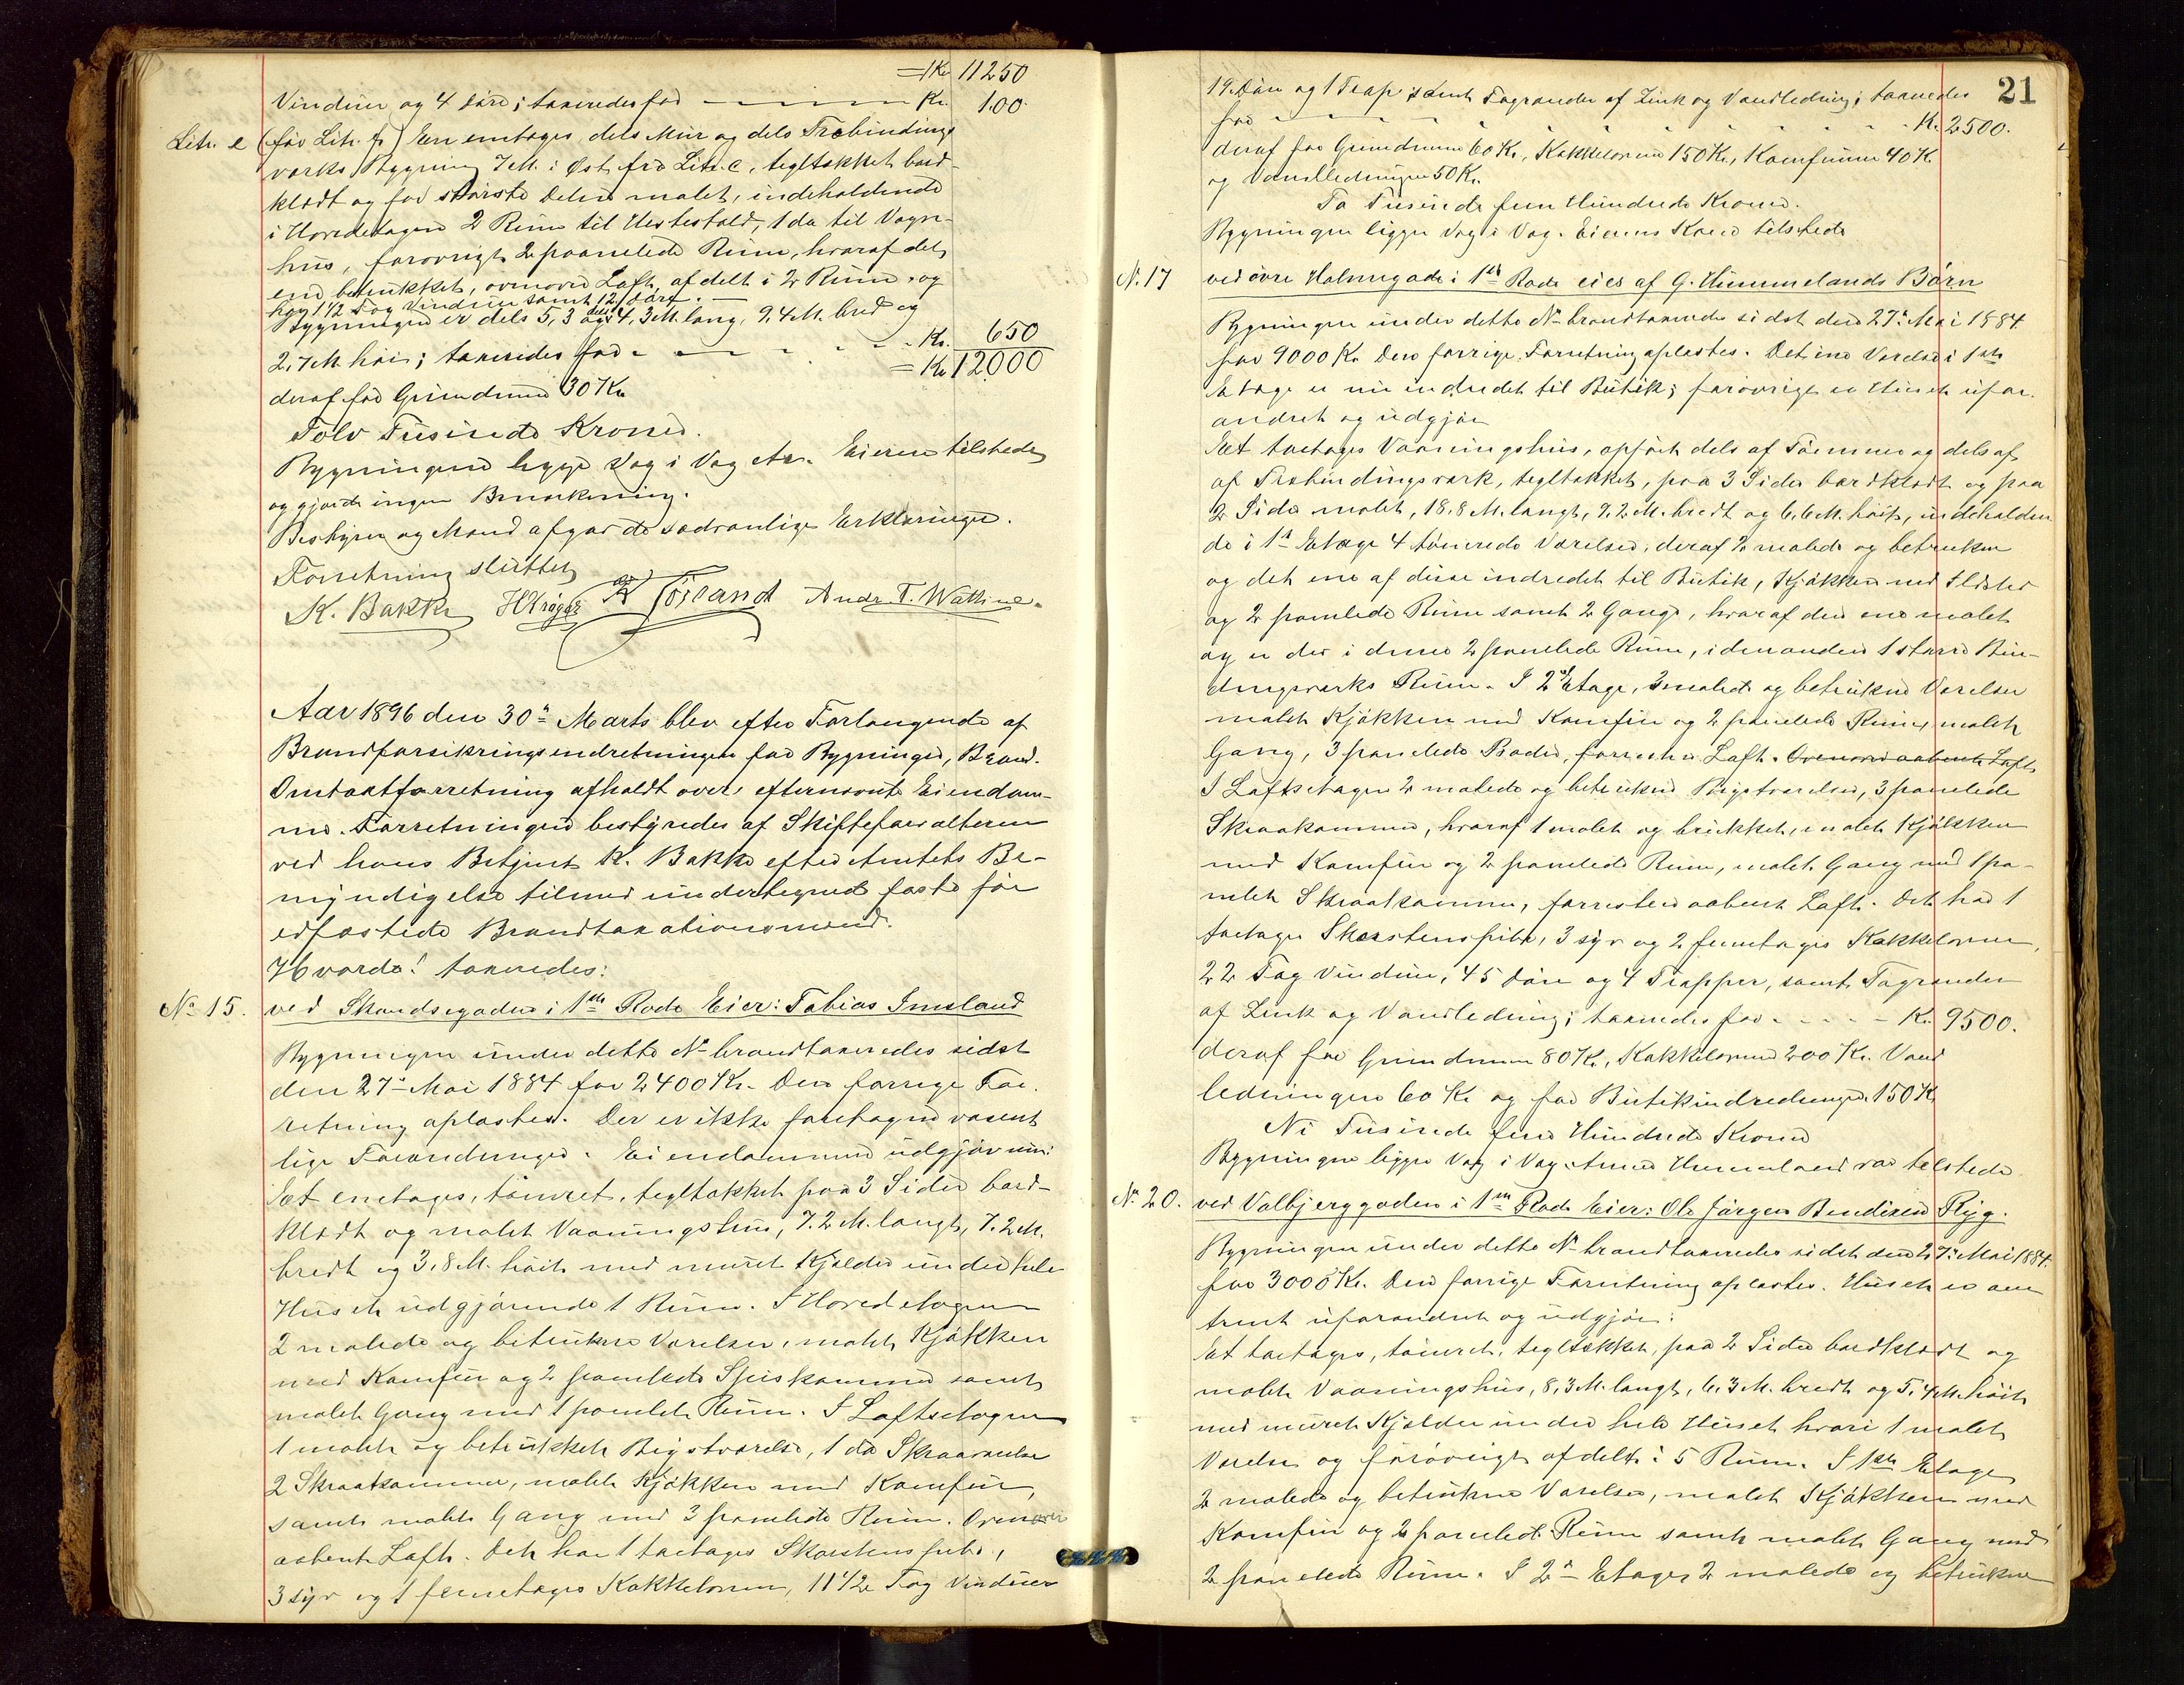 = Kr 11250
Vinduer og 4 Døre; taxeredes for Kr. 100.
Litr. e (før Litr. f) En enetages dels Mur og dels Træbindings
værks Bygning 7 M. i Øst fra Litr. c, tegltækket bord-
klædt og for største Delen malet, indeholdende
i Hovedetagen 2 Rum til Hestestald, 1 do til Vogn-
hus, forøvrigt 2 paanelede Rum, hvoraf det
ene betrukket, ovenover Loft, afdelt i 2 Rum, og
har 1 1/2 Fag Vinduer samt 12 Døre.
Bygningen er dels 5,3 og dels 4,3 M. lang, 9,4 M. bred og
2,7 M. høi; taxeredes for Kr. 650
= Kr 12000
deraf for Grundmur 30 Kr.
Tolv Tusinde Kroner.
Bygningen ligge Væg i Væg etc. Eieren tilstede
og gjorde ingen Bemærkning.
Bestyrer og Mænd afgav de sædvanlige Erklæringer.
Forretning sluttet
K. Bakke H Krøger Andr. T. Wathne.
Aar 1896 den 30te Marts blev efter Forlangende af
Brandforsikringsindretningen for Bygninger, Brand-
Omtaxtforretning afholdt over efternævnte Eiendom-
me. Forretningen bestyredes af Skifteforvalteren
ved hans Betjent K. Bakke efter Amtets Be-
myndigelse tilmed undertegnede faste før
edfæstede Brandtaxationsmænd.
Hvorda! taxeredes:
No 15. ved Skandsegaden i 1ste Rode Eier: Tobias Imsland
Bygningen under dette No brandtaxeredes sidst
den 27de Mai 1884 for 2400 Kr. Den forrige For-
retning oplæstes. Der er ikke foretagne væsent
lige Forandringer. Eiendommen udgjør nu:
Et enetages, tømret, tegltækket paa 3 Sider bord-
klædt og malet Vaaningshus, 7.2 M. langt, 7.2 M.
bredt og 3,8 M. høit med muret Kjælder under hele
Huset udgjørende 1 Rum. I Hovedetagen
2 malede og betrukne Værelser, malet Kjøkken
med Komfur og 2 panelede Spiskammer samt
malet Gang med 1 panelet Rum. I Loftsetagen
1 malet og betrukket Kvistværelse, 1 do Skraaværelse
2 Skraakammer, malet Kjøkken med Komfur,
samt malet Gang med 3 panelede Rum. Ovenover
aabent Loft. Det har 1 toetages Skorstenspibe,
3 syv og 1 femetages Kakkelovne, 11 1/2 Fag Vinduer
21
19 Døre og 1 Trap samt Tagrender af Zink og Vandledning; taxeredes
for Kr. 2500.
deraf for Grundmur 60 Kr., Kakkelovne 150 Kr., Komfurer 40 Kr.
og Vandledningen 50 Kr.
To Tusinde fem Hundrede Kroner.
Bygningen ligger Væg i Væg. Eierens Kone tilstede
No. 17 ved øvre Holmegade i 1ste Rode eies af G. Hummelands Børn
Bygningen under dette No brandtaxeredes sidst den 27de Mai 1884
for 9000 Kr. Den forrige Forretning oplæstes. Det ene Værelse i 1ste
Etage er nu indredet til Butik; forøvrigt er Huset ufor-
andret og udgjør
Et toetages Vaaningshus, opført dels af Tømmer og dels af
af Træbindingsværk, tegltækket, paa 3 Sider bordklædt og paa
2 Sider malet, 18,8 M. langt, 7.2 M. bredt og 6,6 M. høit, indeholden
de i 1ste Etage 4 tømrede Værelser, deraf 2 malede og betrukne
og det ene af disse indredet til Butik, Kjøkken med Ildsted
og 2 panelede Rum samt 2 Gange, hvoraf den ene malet
og er der i denne 2 panelede Rum, i den anden 1 større Bin-
dingsværks Rum. I 2den Etage, 3 malede og betrukne Værelser
malet Kjøkken med Komfur og 2 panelede Rum, malet
Gang, 3 panelede Boder, forresten Loft. Ovenover aabent Loft
I Loftsetagen 2 malede og betrukne Kvistværelser, 3 panelede
Skraakammer, hvoraf 1 malet og btrukket, malet Kjøkken
med Komfur og 2 panelede Rum, malet Gang med 1 pa-
nelet Skraakammer, forresten aabent Loft. Det har 1
toetages Skorstenspibe, 3 syv og 2 femetages Kakkelovne,
22 Fag Vinduer, 45 Døre og 4 Trapper, samt Tagrender
af Zink og Vandledning; taxeredes for Kr. 9500.
deraf for Grundmur 80 Kr., Kakkelovne 200 Kr. Vand
ledningen 60 Kr og for Butikindredningen 150 Kr.
Ni Tusinde fem Hundrede Kroner
Bygningen ligger Væg i Væg. Anna Hummeland var tilstede
No 20. ved Valbjerggaden i 1ste Rode Eier: Ole Jørgen Bendixen Ryg.
Bygningen under dette No brandtaxeredes sidst den 27de Mai 1884.
for 3000 Kr. Den forrige Forretning oplæstes. Huset er om
trent uforandret og udgjør:
Et toetages, tømret, tegltækket, paa 2 Sider bordklædt og
malet Vaaningshus, 8,3 M. langt, 6,3 M. bredt og 5,4 M. høit
med muret Kjælder under hele Huset hvori 1 malet
Værelse og forøvrigt afdelt i 5 Rum. I 1ste Etage
2 malede og betrukne Værelser, malet Kjøkken med
Komfur og 2 panelede Rum samt malet Gang med
2 panelede Rum. I 2den Etage 2 malede og betrukne